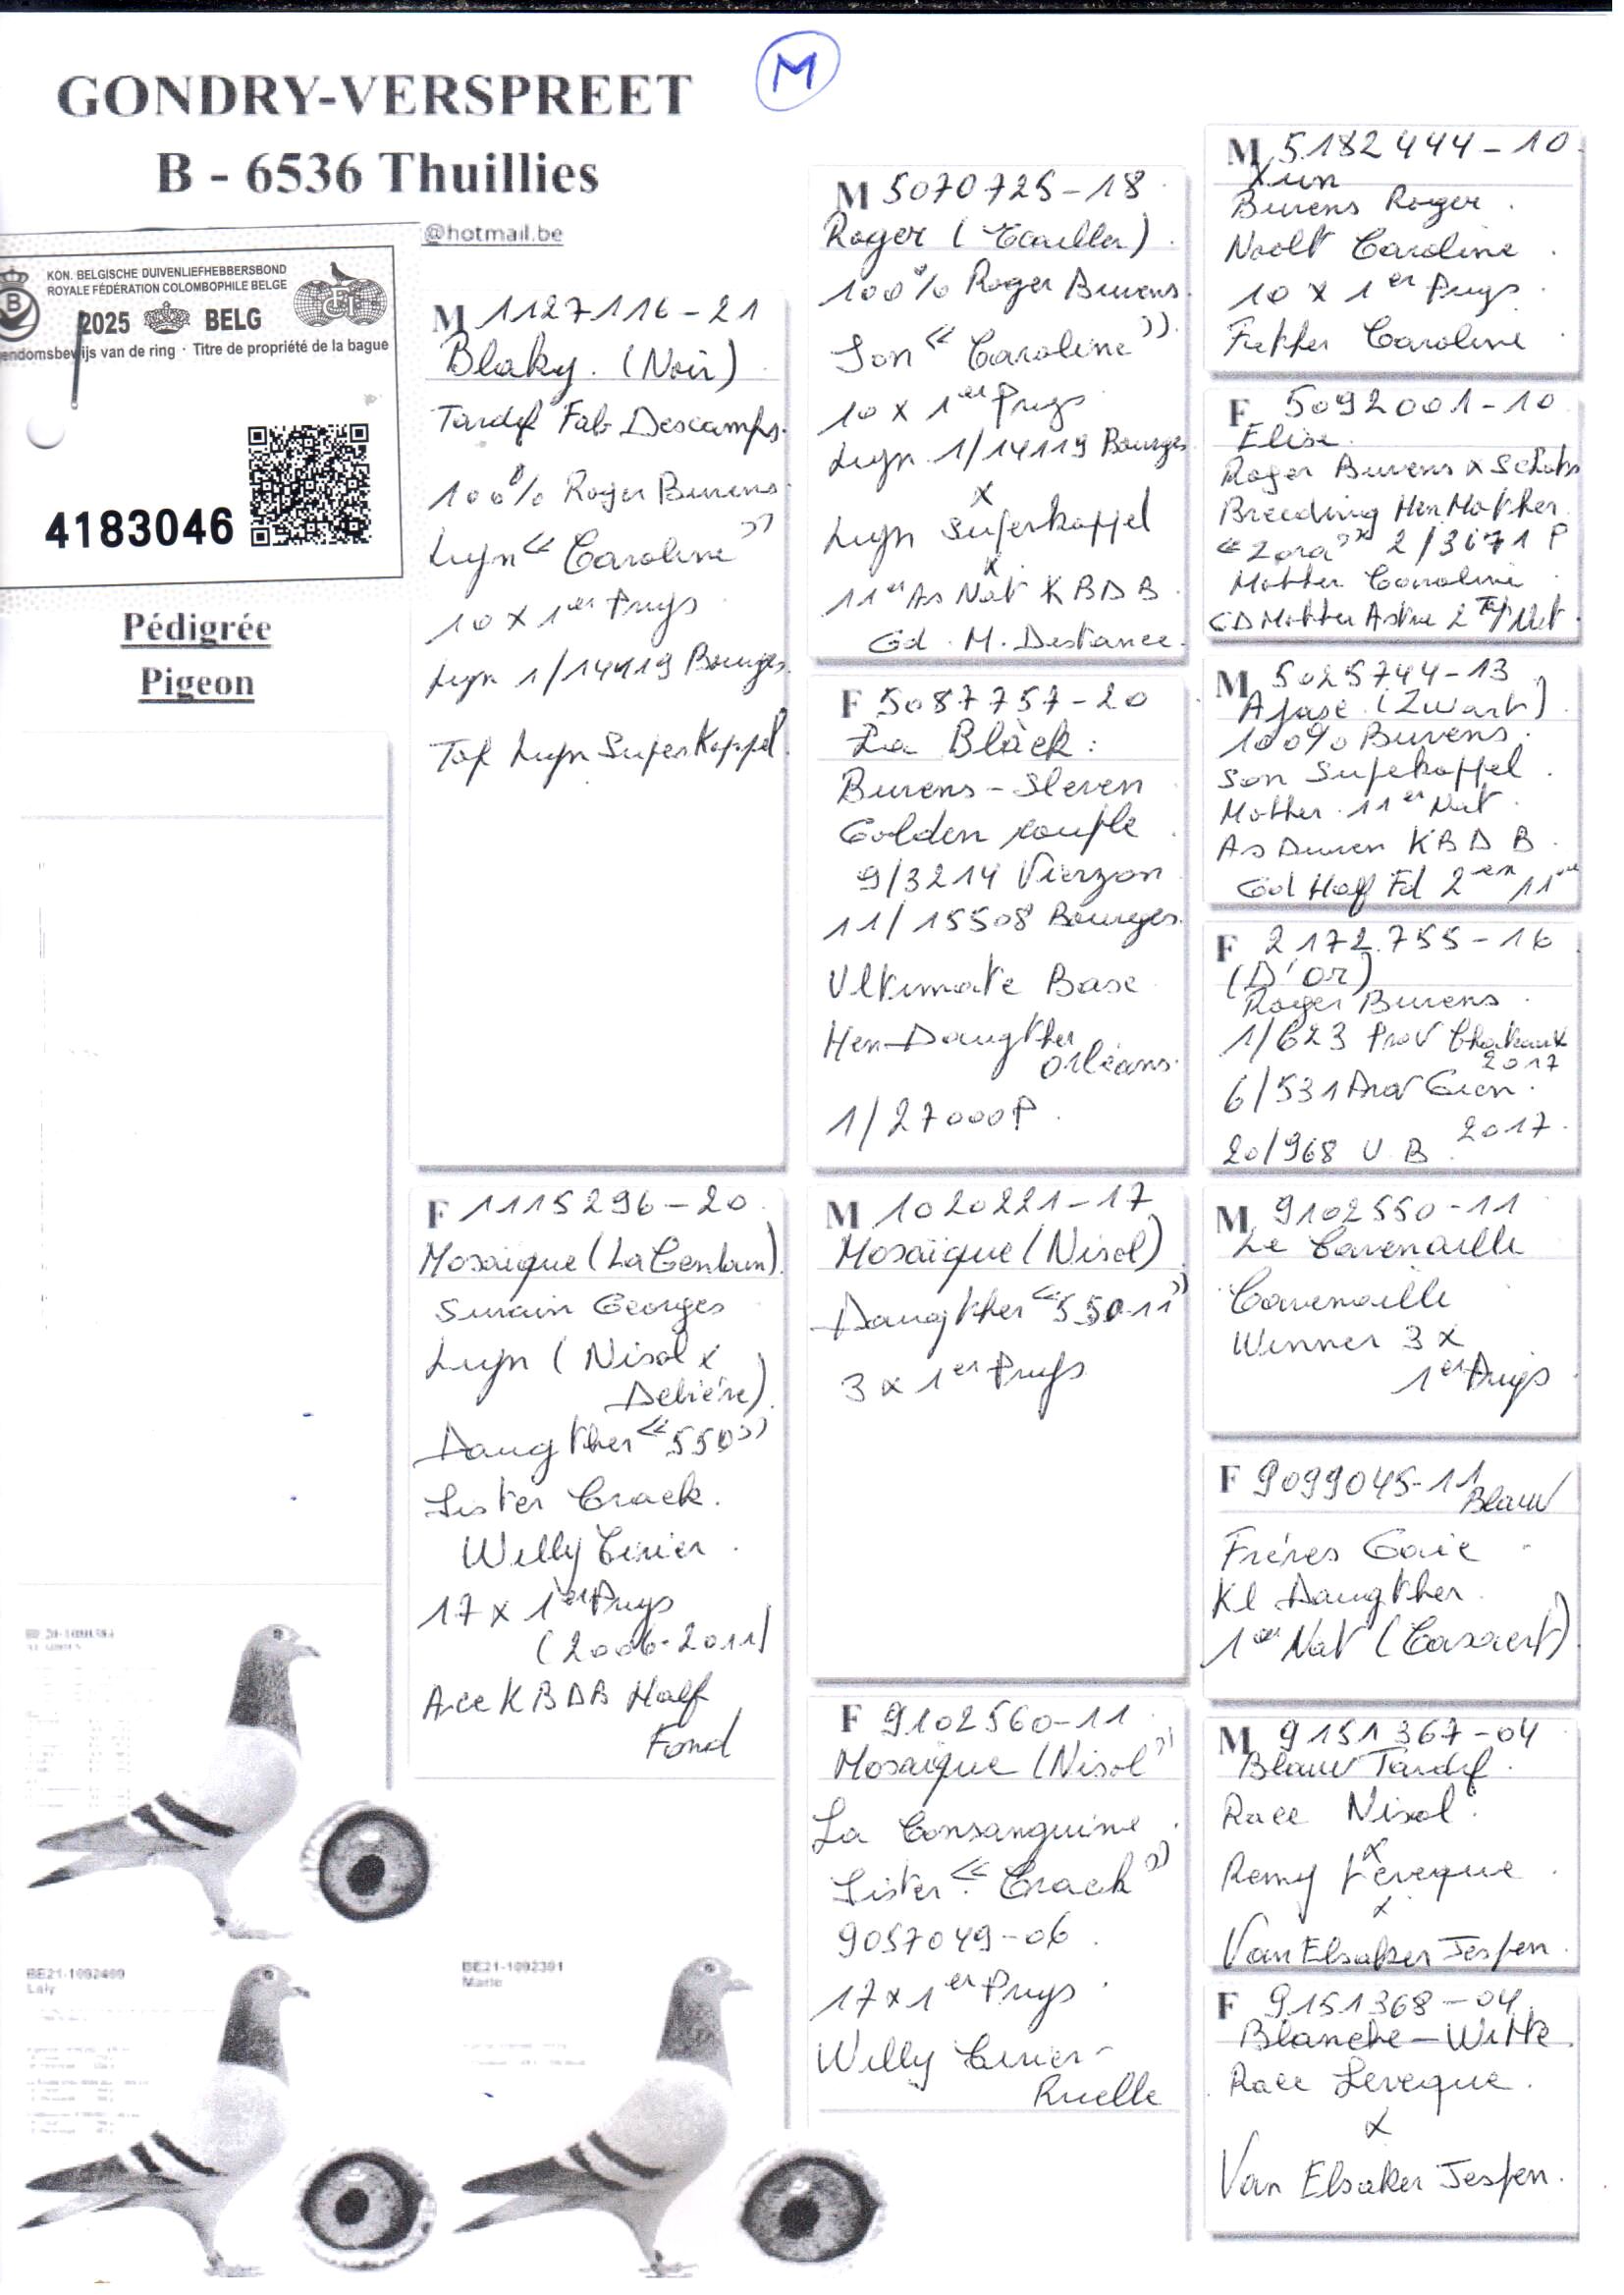 M
GONDRY-VERSPREET
B - 6536 Thuillies
@hotmail.be
KON. BELGISCHE DUIVENLIEFHEBBERSBOND
ROYALE FÉDÉRATION COLOMBOPHILE BELGE
2025 BELG
endomsbewijs van de ring · Titre de propriété de la bague
4183046
Pédigrée
Pigeon
M 1127116-21
Blaky. (Noir)
Tardif Fab Descamps.
100% Roger Buvens
Lijn « Caroline »
10 x 1er Prijs
Lijn 1/14119 Bourges.
Top Lijn SuperKoppel.
F 1115296-20
Mosaïque (La Genlain)
Surain Georges
Lijn ( Nisol x
Debière)
Daugther « 550 »
Sister Crack.
Willy Cirier.
17 x 1er Prijs
(2006-2011)
Ace KBDB Half
Fond
M 5070725-18
Roger ( Ecailler).
100% Roger Buvens.
Son « Caroline ».
10 x 1er Prijs
Lijn 1/14119 Bourges
x
Lijn Superkoppel
x
11er As Nat KBDB.
Gd. M. Distance.
F 5087757-20
La Blàck:
Buvens - Sleven
Golden couple
9/3214 Vierzon
11/15508 Bourges.
Ultimate Base
Hen-Daugther
Orléans.
1/27000P.
M 1020221-17
Mosaïque (Nisol)
Daugther « 550-11 »
3 x 1er Prijs
F 9102560-11
Mosaïque (Nisol »
La Consanguine.
Sister « Crack »
9057049-06.
17 x 1er Prijs.
Willy Cirier-
Ruelle
M 5182444-10.
Xun
Buvens Roger.
Nselt Caroline.
10 x 1er Prijs.
Father Caroline.
F 5092001-10
Elise.
Roger Buvens x Schuts
Breeding Hen Mother
« Zora » 2/3671 P
Mother Caroline.
GD Mother Astrie 2 Nat.
M 5025744-13
Apase (Zwart)
100% Buvens.
son Supekoppel.
Mother 11er Nat.
As Duiven KBDB.
Gd Half Fd 2en 11
F 2172.755-16
(D'or)
Roger Buvens.
1/623 Prov Chateaux
2017
6/531 Prov Gien.
2017.
20/968 U.B.
M 9102550-11
Le Cavenaille
Cavenaille
Winner 3 x
1er Prijs
F 9099045-11
Blauw
Fréres Gaie
Kl Daugther.
1er Nat (Casaert)
M 9151367-04
Blauw Tardif.
Race Nisol.
x
Remy Leveque.
x
Van Elsaker Jespen.
F 9151368-04
Blanche - Witte.
Race Leveque.
x
Van Elsaker Jespen.
BE21-1092409
Laly
BE21-1092391
Marie